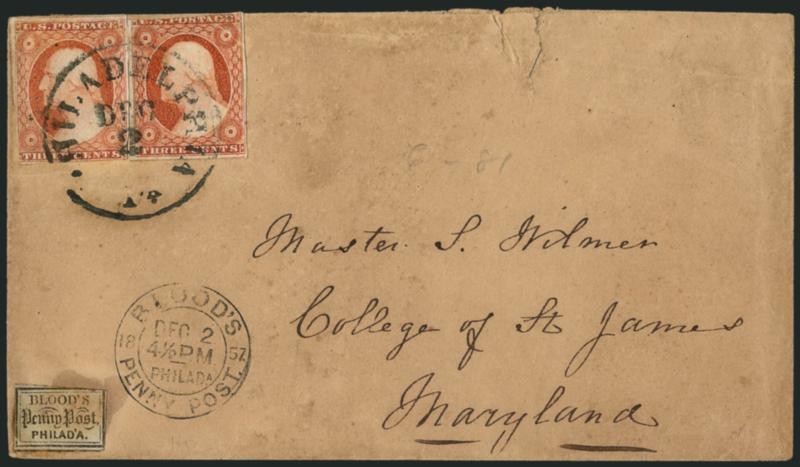 U.S. POSTAGE U.S. POSTAGE
THREE CENTS THREE CENTS
PHILADELPHIA
DEC
2
Pa
6 - 81
Master S. Wilmer
College of St James
Maryland
BLOOD'S
DEC 2
18 57
4½ PM
PHILADA
PENNY POST
BLOOD'S
Penny Post,
PHILAD'A.